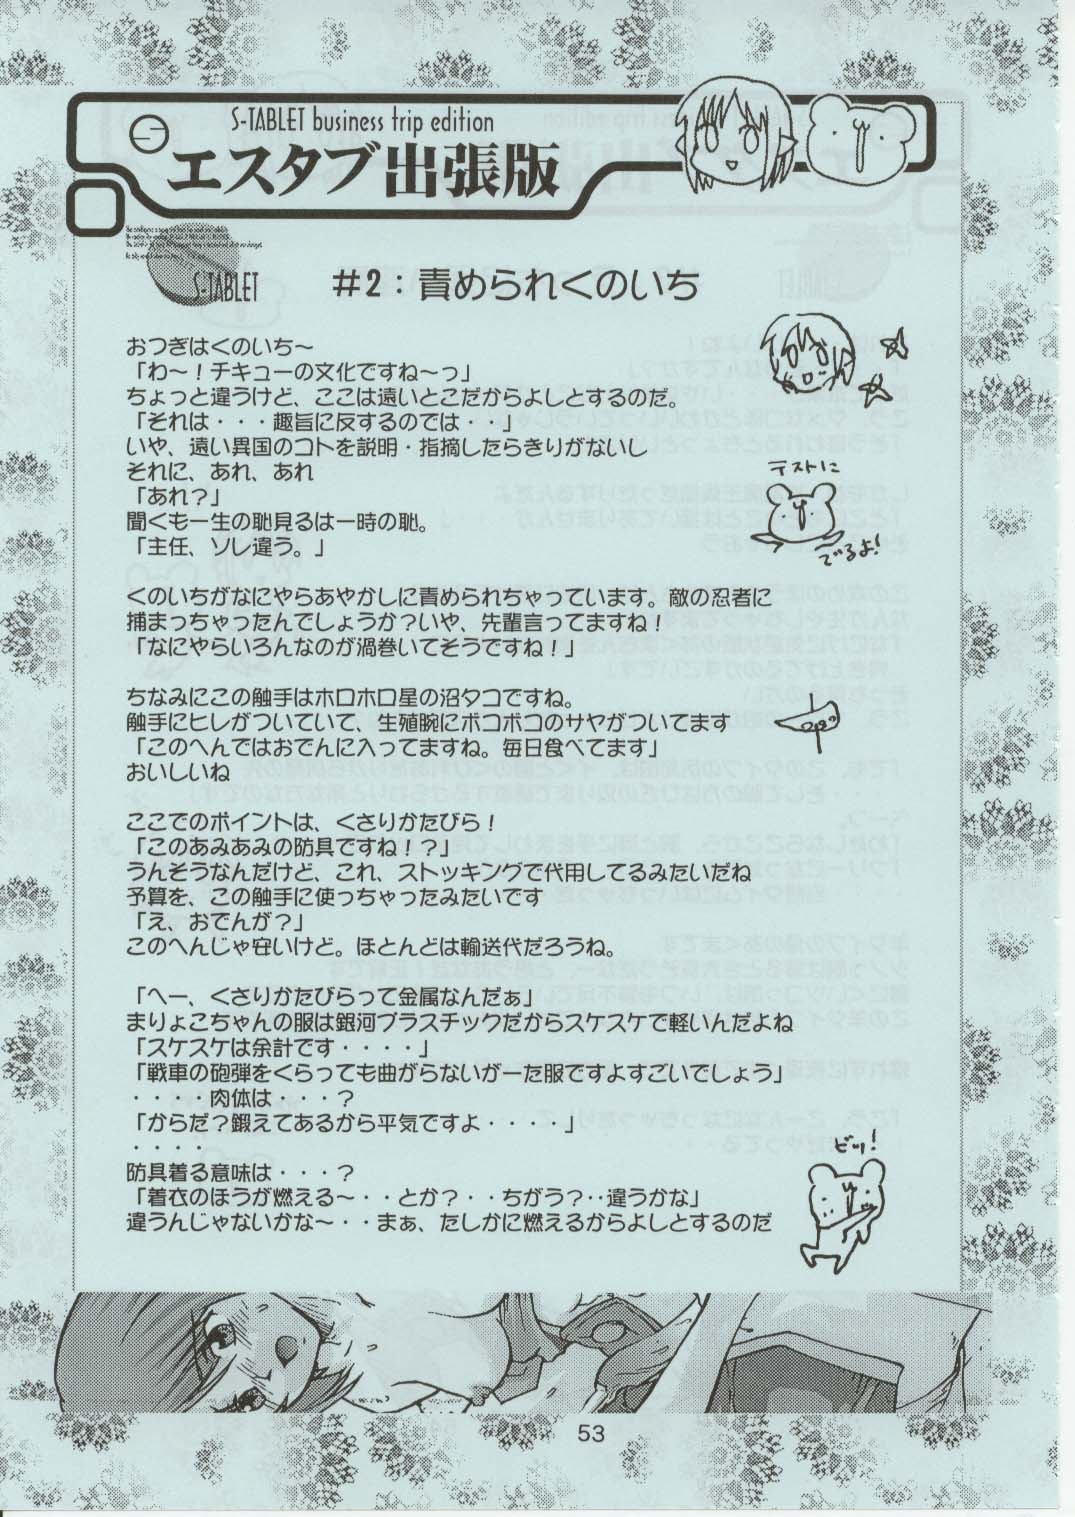 S-TABLET business trip edition
エスタブ出張版
S-TABLET
#2:責められくのいち
おつぎはくのいち～
「わ～!チキューの文化ですね～っ」
ちょっと違うけど、ここは遠いとこだからよしとするのだ。
「それは・・・趣旨に反するのでは・・」
いや、遠い異国のコトを説明・指摘したらきりがないし
それに、あれ、あれ
「あれ?」
聞くも一生の恥見るは一時の恥。
「主任、ソレ違う。」
テストに
でるよ!
くのいちがなにやらあやかしに責められちゃっています。敵の忍者に
捕まっちゃったんでしょうか?いや、先輩言ってますね!
「なにやらいろんなのが渦巻いてそうですね!」
ちなみにこの触手はホロホロ星の沼タコですね。
触手にヒレがついていて、生殖腕にボコボコのサヤがついてます
「このへんではおでんに入ってますね。毎日食べてます」
おいしいね
ここでのポイントは、くさりかたびら!
「このあみあみの防具ですね!?」
うんそうなんだけど、これ、ストッキングで代用してるみたいだね
予算を、この触手に使っちゃったみたいです
「え、おでんが?」
このへんじゃ安いけど。ほとんどは輸送代だろうね。
「へー、くさりかたびらって金属なんだぁ」
まりょこちゃんの服は銀河プラスチックだからスケスケで軽いんだよね
「スケスケは余計です・・・・」
「戦車の砲弾をくらっても曲がらないがーた服ですよすごいでしょう」
・・・・肉体は・・・・?
「からだ?鍛えてあるから平気ですよ・・・・」
・・・・
防具着る意味は・・・?
「着衣のほうが燃える～・・とか?・・ちがう?‥違うかな」
違うんじゃないかな～・・まぁ、たしかに燃えるからよしとするのだ
ビッ!
53